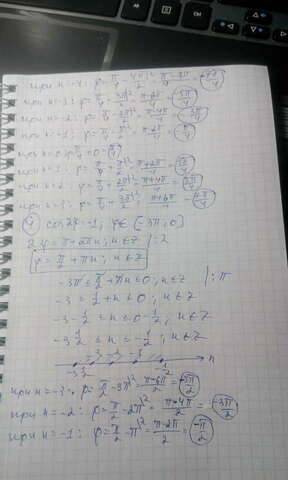 при n=-4: φ=π/4-4π/2=π-8π/4=-7π/4
при n=-3: φ=π/4-3π/2=π-6π/4=-5π/4
при n=-2: φ=π/4-2π/2=π-4π/4=-3π/4
при n=-1: φ=π/4-π/2=π-2π/4=-π/4
при n=0: φ=π/4+0=π/4
при n=1: φ=π/4+π/2=π+2π/4=3π/4
при n=2: φ=π/4+2π/2=π+4π/4=5π/4
при n=3: φ=π/4+3π/2=π+6π/4=7π/4
④ cos2φ=-1; φ∈[-3π;0]
2φ=π+2πn; n∈Z |:2
φ=π/2+πn; n∈Z
-3π≤π/2+πn≤0; n∈Z |:π
-3≤1/2+n≤0; n∈Z
-3-1/2≤n≤0-1/2; n∈Z
-3 1/2≤n≤-1/2; n∈Z
-3 -2 -1 n
-3 1/2 -1/2
при n=-3: φ=π/2-3π=π-6π/2=-5π/2
при n=-2: φ=π/2-2π=π-4π/2=-3π/2
при n=-1: φ=π/2-π=π-2π/2=-π/2